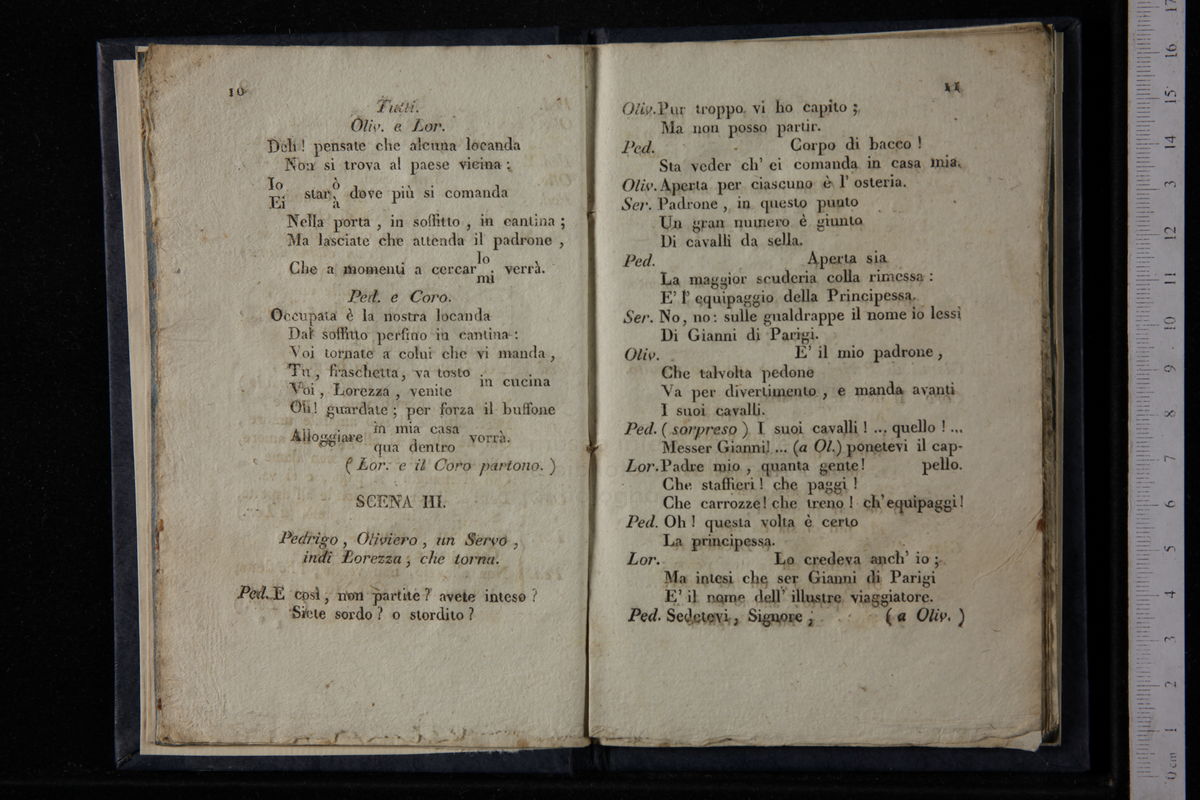 10
Tutti.
Oliv. e Lor.
Deh! pensate che alcuna locanda
Non si trova al paese vicina:
Io ò
Ei star à dove più si comanda
Nella porta, in soffitto, in cantina;
Ma lasciate che attenda il padrone,
Che a momenti a cercar lo verrà.
mi
Ped. e Coro.
Occupata è la nostra locanda
Dal soffitto perfino in cantina:
Voi tornate a colui che vi manda,
Tu, fraschetta, va tosto in cucina
Voi, Lorezza, venite
Oh! guardate; per forza il buffone
Alloggiare in mia casa vorrà.
qua dentro
(Lor. e il Coro partono.)
SCENA III.
Pedrigo, Oliviero, un Servo,
indi Lorezza, che torna.
Ped. E così, non partite? avete inteso?
Siete sordo? o stordito?
11
Oliv. Pur troppo vi ho capito;
Ma non posso partir.
Ped. Corpo di bacco!
Sta veder ch' ei comanda in casa mia.
Oliv. Aperta per ciascuno è l' osteria.
Ser. Padrone, in questo punto
Un gran numero è giunto
Di cavalli da sella.
Ped. Aperta sia
La maggior scuderia colla rimessa:
E' l' equipaggio della Principessa.
Ser. No, no: sulle gualdrappe il nome io lessi
Di Gianni di Parigi.
Oliv. E' il mio padrone,
Che talvolta pedone
Va per divertimento, e manda avanti
I suoi cavalli.
Ped. (sorpreso) I suoi cavalli! ... quello! ...
Messer Gianni! ... (a Ol.) ponetevi il cap-
Lor. Padre mio, quanta gente! pello.
Che staffieri! che paggi!
Che carrozze! che treno! ch' equipaggi!
Ped. Oh! questa volta è certo
La principessa.
Lor. Lo credeva anch' io;
Ma intesi che ser Gianni di Parigi
E' il nome dell' illustre viaggiatore.
Ped. Sedetevi, Signore; (a Oliv.)
0 cm 1 2 3 4 5 6 7 8 9 10 11 12 13 14 15 16 17